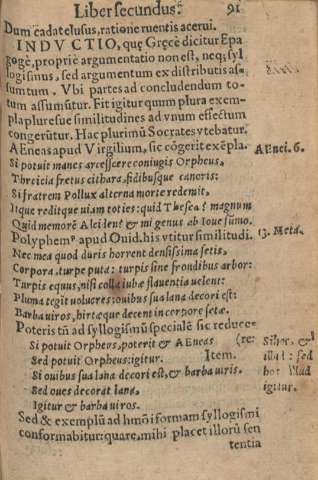 Liber secundus. 91
Dum cadat elusus, ratione ruentis acerui.
INDVCTIO, quę Gręce dicitur Epa
gogè, propriè argumentatio non est, neq; syl
logismus, sed argumentum ex distributis as-
sumtum. Vbi partes ad concludendum to-
tum assumūtur. Fit igitur quum plura exem-
pla pluresue similitudines ad vnum effectum
congerūtur. Hac plurimū Socrates vtebatur.
AEneas apud Virgilium, sic cōgerit exēpla. AEnei. 6.
Si potuit manes arcessere coniugis Orpheus,
Threicia fretus cithara, fidibusque canoris:
Si fratrem Pollux alterna morte redemit,
Itque reditque uiam toties: quid Thesea? magnum
Quid memorē Alciden? & mi genus ab Ioue sūmo.
Polyphem⁹ apud Ouid. his vtitur similitudi. 13. Meta.
Nec mea quod duris horrent densissima setis,
Corpora, turpe puta: turpis sine frondibus arbor:
Turpis equus, nisi colla iubæ flauentia uelent:
Pluma tegit uolucres: ouibus sua lana decori est:
Barba uiros, hirtæque decent in corpore setæ.
Poteris tñ ad syllogismū speciale sic reduce-
Si potuit Orpheus, poterit & AEneas (re:
Sed potuit Orpheus: igitur. Item.
Si ouibus sua lana decori est, & barba uiris.
Sed oues decorat lana,
Igitur & barba uiros.
Sed & exemplū ad hmōi formam syllogismi
conformabitur: quare, mihi placet illorū sen
tentia